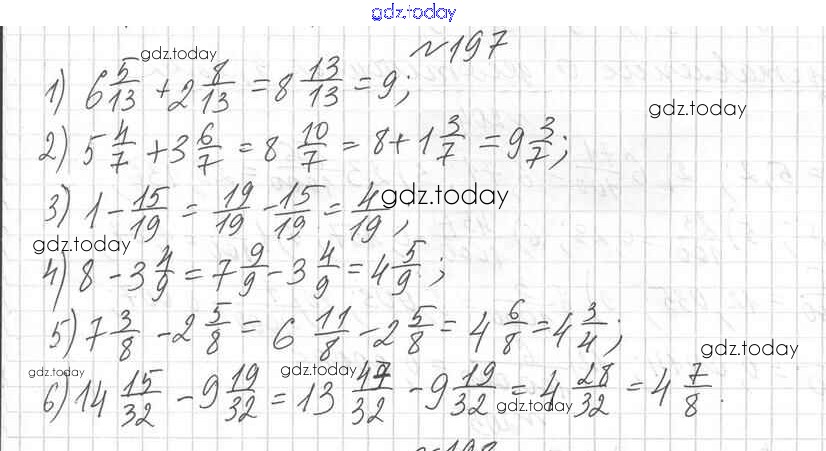 gdz.today
№197
gdz.today
1) 6 5/13 + 2 8/13 = 8 13/13 = 9;
gdz.today
2) 5 4/7 + 3 6/7 = 8 10/7 = 8 + 1 3/7 = 9 3/7;
3) 1 - 15/19 = 19/19 - 15/19 = 4/19;
gdz.today
gdz.today
4) 8 - 3 4/9 = 7 9/9 - 3 4/9 = 4 5/9;
5) 7 3/8 - 2 5/8 = 6 11/8 - 2 5/8 = 4 6/8 = 4 3/4;
gdz.today
gdz.today
gdz.today
6) 14 15/32 - 9 19/32 = 13 47/32 - 9 19/32 = 4 28/32 = 4 7/8.
gdz.today